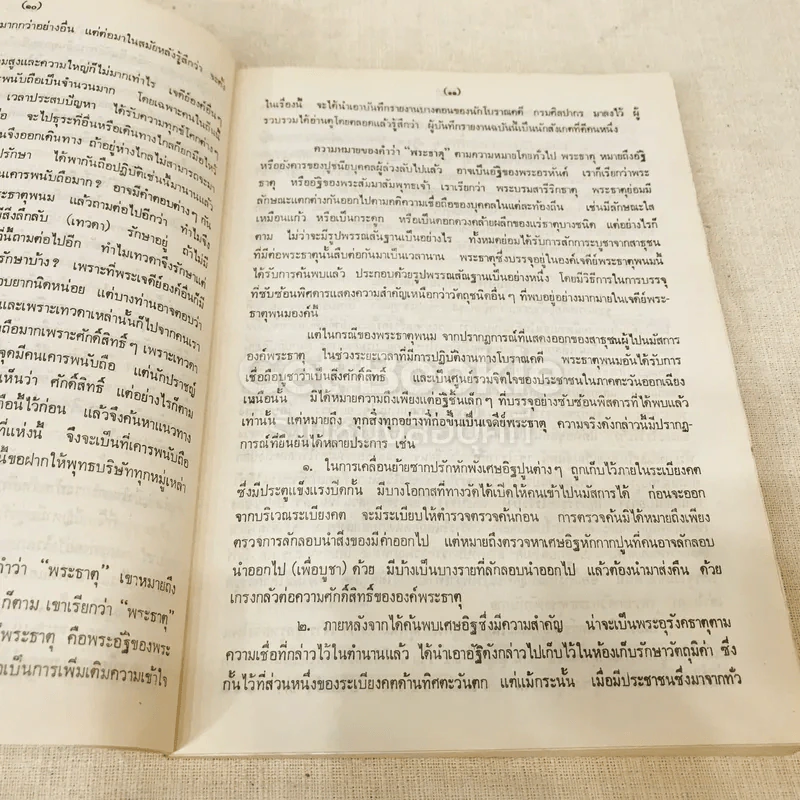 (๑๐)
มากกว่าอย่างอื่น แต่ต่อมาในสมัยหลังรู้สึกว่า
มสูงและความใหญ่ก็ไม่มากเท่าไร เจดีย์องค์อื่นๆ
พนับถือเป็นจำนวนมาก โดยเฉพาะคนในถิ่นนี้
เวลาประสบปัญหา ได้รับความทุกข์โศกต่างๆ
จะไปธุระที่อื่นหรือเดินทางไกลก็ยกมือไหว้
จึงออกเดินทาง ถ้าอยู่ห่างไกลไม่สามารถจะมา
ปรักษา ได้พากันถือปฏิบัติเช่นนี้มานานแล้ว
นเคารพนับถือมาก? อาจมีคำตอบต่างๆ กัน
ะธาตุพนม แล้วถามต่อไปอีกว่า ทำไมจึง
มีสิ่งลึกลับ (เทวดา) รักษาอยู่ ถ้าไม่มี
รนี้ถามต่อไปอีก ทำไมเทวดาจึงรักษาแต่
รักษาบ้าง? เพราะที่พระเจดีย์องค์อื่นก็มี
อบยากนิดหน่อย แต่บางท่านอาจตอบว่า
และเพราะเทวดาเหล่านั้นก็ไปจากคนเรา
ถือมากเพราะศักดิ์สิทธิ์ๆ เพราะเทวดา
จุดมีคนเคารพนับถือ แต่นักปราชญ์
เห็นว่า ศักดิ์สิทธิ์ แต่อย่างไรก็ตาม
ถือนี้ไว้ก่อน แล้วจึงค้นหาแนวทาง
ที่แห่งนี้ จึงจะเป็นที่เคารพนับถือ
นี้ขอฝากให้พุทธบริษัททุกหมู่เหล่า
คำว่า “พระธาตุ” เขาหมายถึง
ก็ตาม เขาเรียกว่า “พระธาตุ”
พระธาตุ คือพระอัฐิของพระ
เป็นการเพิ่มเติมความเข้าใจ
(๑๑)
ในเรื่องนี้ จะได้นำเอาบันทึกรายงานบางตอนของนักโบราณคดี กรมศิลปากร มาลงไว้ ผู้
รวบรวมได้อ่านดูโดยตลอดแล้วรู้สึกว่า ผู้บันทึกรายงานฉบับนี้เป็นนักสังเกตที่ดีคนหนึ่ง
ความหมายของคำว่า “พระธาตุ” ตามความหมายโดยทั่วไป พระธาตุ หมายถึงอัฐิ
หรืออังคารของปูชนียบุคคลผู้ล่วงลับไปแล้ว อาจเป็นอัฐิของพระอรหันต์ เราก็เรียกว่าพระ
ธาตุ หรืออัฐิของพระสัมมาสัมพุทธเจ้า เราเรียกว่า พระบรมสารีริกธาตุ พระธาตุย่อมมี
ลักษณะแตกต่างกันออกไปตามคติความเชื่อถือของบุคคลในแต่ละท้องถิ่น เช่นมีลักษณะใส
เหมือนแก้ว หรือเป็นกระดูก หรือเป็นดอกดวงคล้ายผลึกของแร่ธาตุบางชนิด แต่อย่างไรก็
ตาม ไม่ว่าจะมีรูปพรรณสัณฐานเป็นอย่างไร ทั้งหมดย่อมได้รับการสักการะบูชาจากสาธุชน
ที่มีต่อพระธาตุนั้นสืบต่อกันมาเป็นเวลานาน พระธาตุซึ่งบรรจุอยู่ในองค์เจดีย์พระธาตุพนมนี้
ได้รับการค้นพบแล้ว ประกอบด้วยรูปพรรณสัณฐานเป็นอย่างหนึ่ง โดยมีวิธีการในการบรรจุ
ที่ซับซ้อนพิศดารแสดงความสำคัญเหนือกว่าวัตถุชนิดอื่นๆ ที่พบอยู่อย่างมากมายในเจดีย์พระ-
ธาตุพนมองค์นี้
แต่ในกรณีของพระธาตุพนม จากปรากฏการณ์ที่แสดงออกของสาธุชนผู้ไปนมัสการ
องค์พระธาตุ ในช่วงระยะเวลาที่มีการปฏิบัติงานทางโบราณคดี พระธาตุพนมอันได้รับการ
เชื่อถือบูชาว่าเป็นสิ่งศักดิ์สิทธิ์ และเป็นศูนย์รวมจิตใจของประชาชนในภาคตะวันออกเฉียง
เหนือนั้น มิได้หมายความถึงเพียงแต่อัฐิชิ้นเล็กๆ ที่บรรจุอย่างซับซ้อนพิสดารที่ได้พบแล้ว
เท่านั้น แต่หมายถึง ทุกสิ่งทุกอย่างที่ก่อขึ้นเป็นเจดีย์พระธาตุ ความจริงดังกล่าวนี้มีปรากฏ-
การณ์ที่ยืนยันได้หลายประการ เช่น
๑. ในการเคลื่อนย้ายซากปรักหักพังเศษอิฐปูนต่างๆ ถูกเก็บไว้ภายในระเบียงคต
ซึ่งมีประตูแข็งแรงปิดกั้น มีบางโอกาสที่ทางวัดได้เปิดให้คนเข้าไปนมัสการได้ ก่อนจะออก
จากบริเวณระเบียงคต จะมีระเบียบให้ตำรวจตรวจค้นก่อน การตรวจค้นมิได้หมายถึงเพียง
ตรวจการลักลอบนำสิ่งของมีค่าออกไป แต่หมายถึงตรวจหาเศษอิฐหักกากปูนที่คนอาจลักลอบ
นำออกไป (เพื่อบูชา) ด้วย มีบ้างเป็นบางรายที่ลักลอบนำออกไป แล้วต้องนำมาส่งคืน ด้วย
เกรงกลัวต่อความศักดิ์สิทธิ์ขององค์พระธาตุ
๒. ภายหลังจากได้ค้นพบเศษอัฐิซึ่งมีความสำคัญ น่าจะเป็นพระอุรังคธาตุตาม
ความเชื่อที่กล่าวไว้ในตำนานแล้ว ได้นำเอาอัฐิดังกล่าวไปเก็บไว้ในห้องเก็บรักษาวัตถุมีค่า ซึ่ง
กั้นไว้ที่ส่วนหนึ่งของระเบียงคตด้านทิศตะวันตก แต่แม้กระนั้น เมื่อมีประชาชนซึ่งมาจากทั่ว